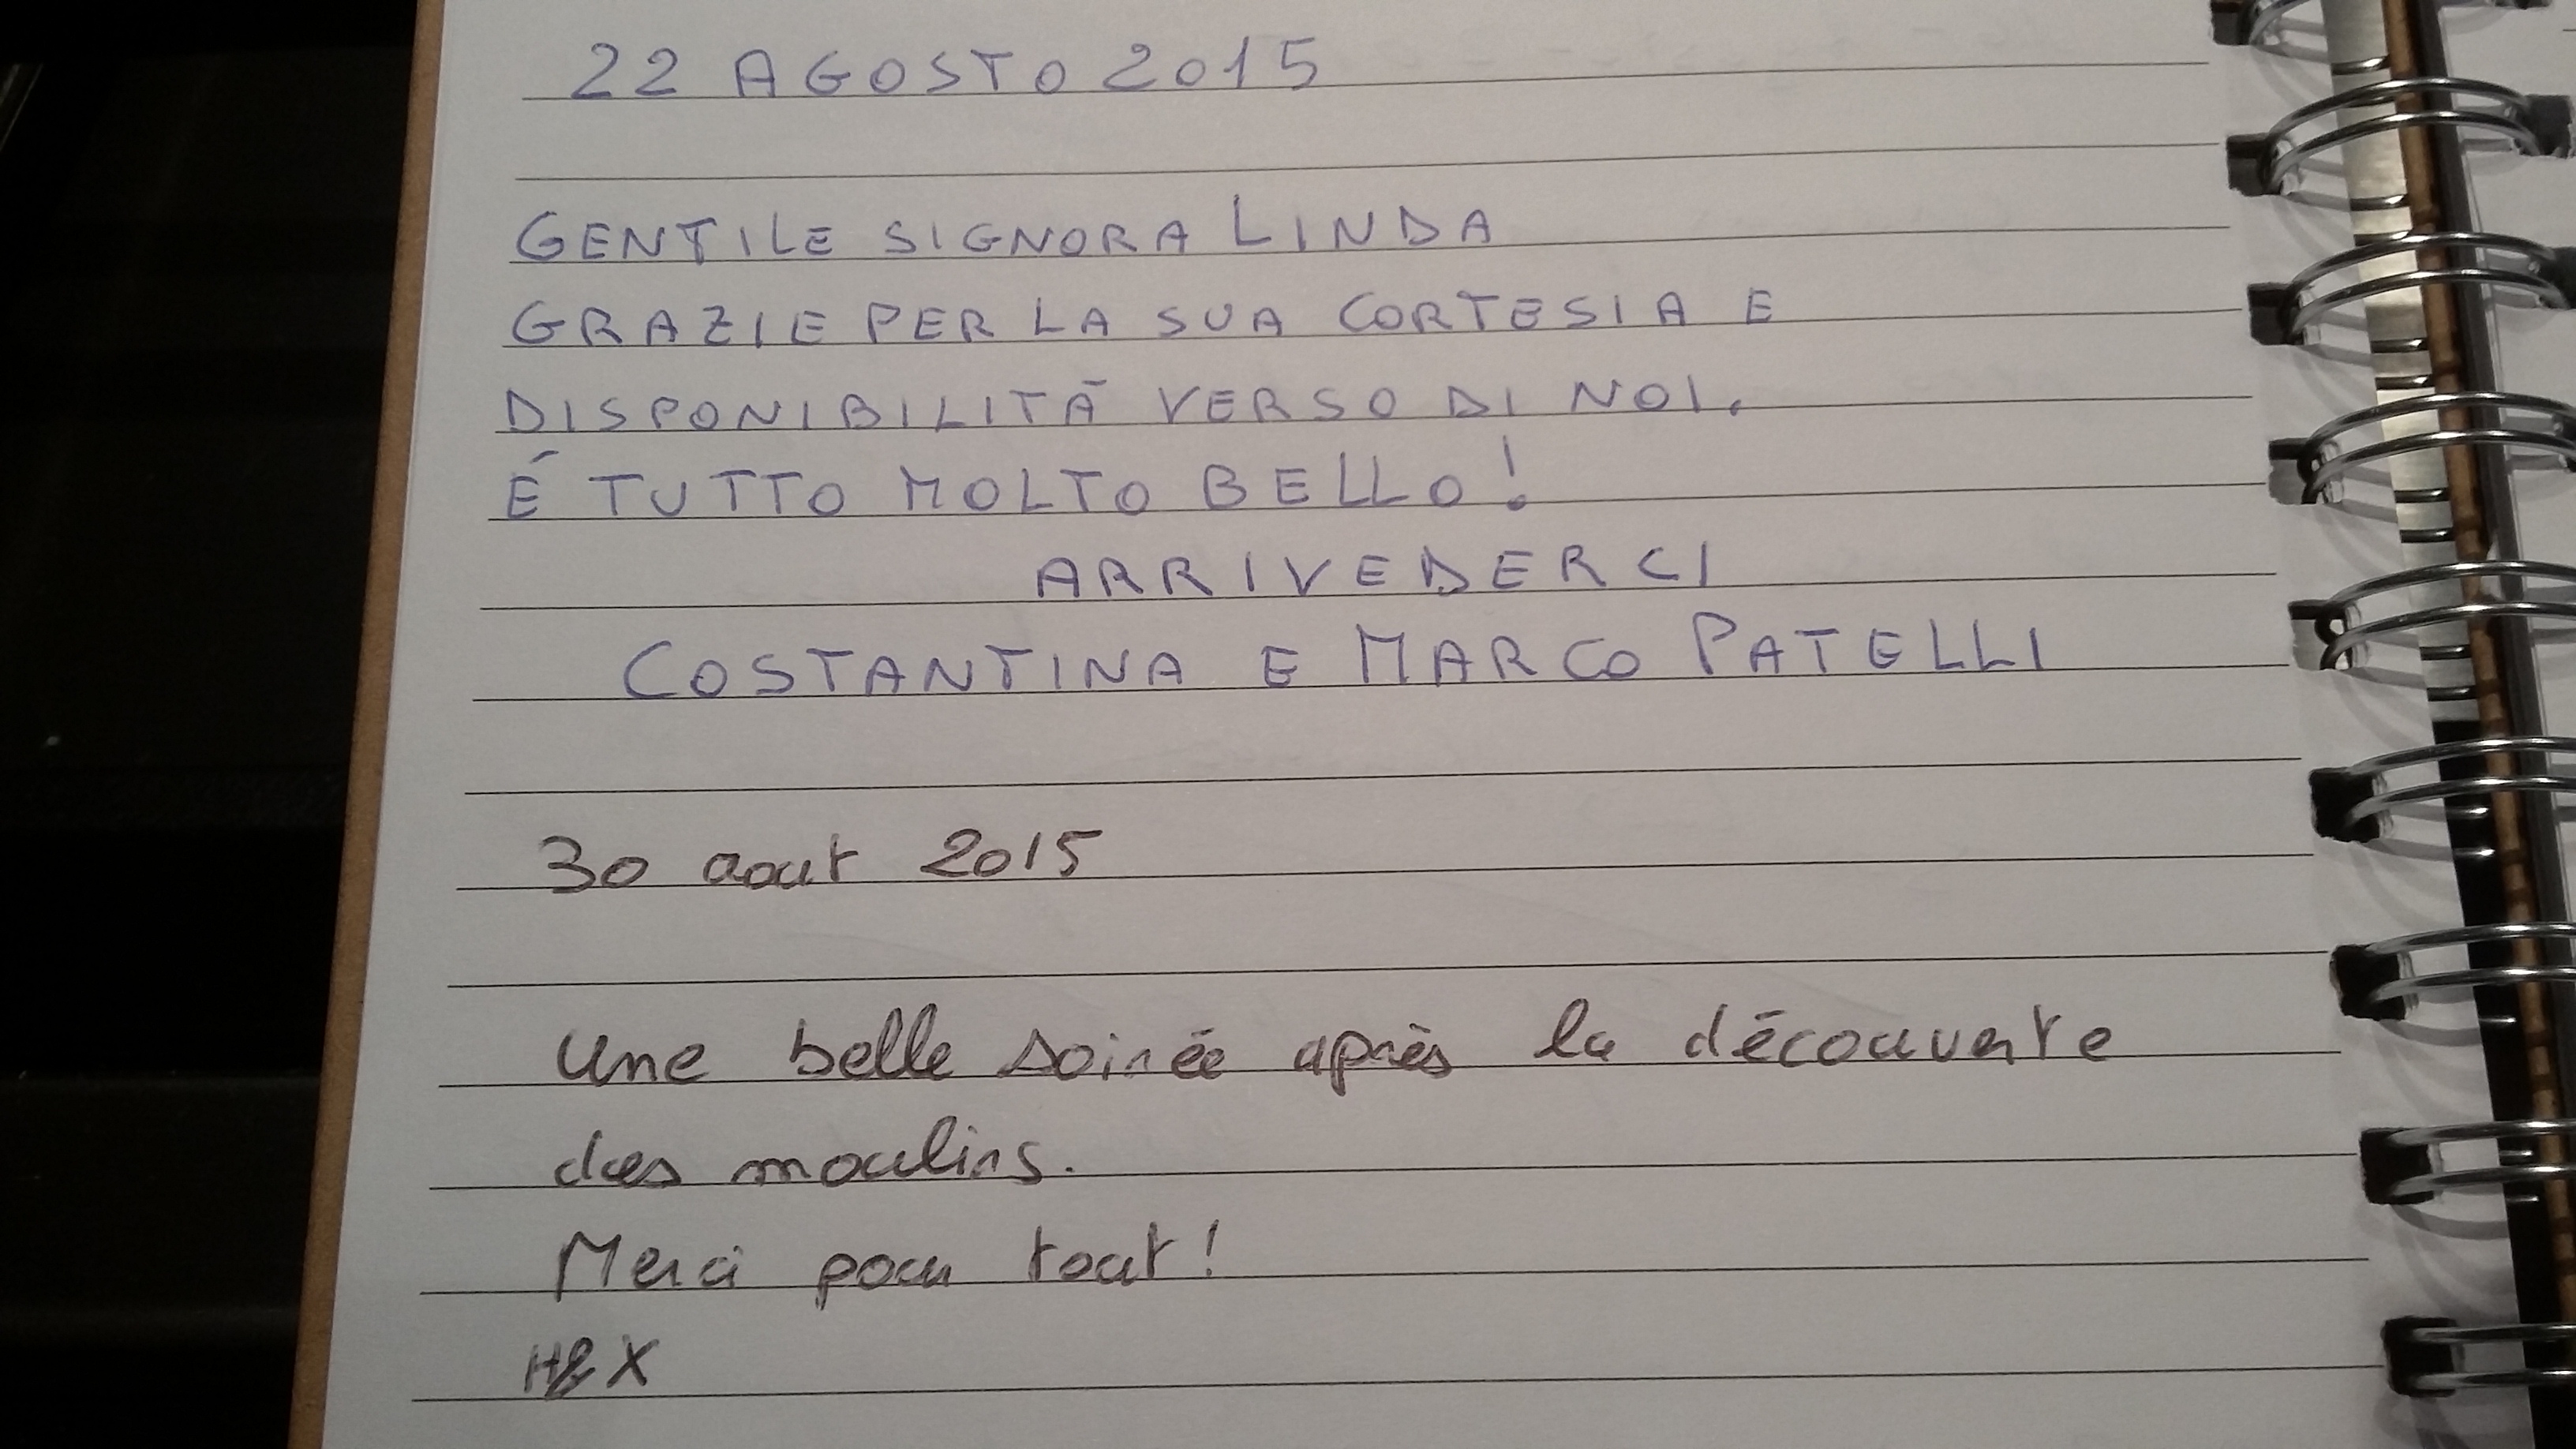 22 AGOSTO 2015
GENTILE SIGNORA LINDA
GRAZIE PER LA SUA CORTESIA E
DISPONIBILITÀ VERSO DI NOI.
É TUTTO MOLTO BELLO!
ARRIVEDERCI
COSTANTINA E MARCO PATELLI
30 aout 2015
Une belle soirée après la découverte
des moulins.
Merci pour tout!
H&X